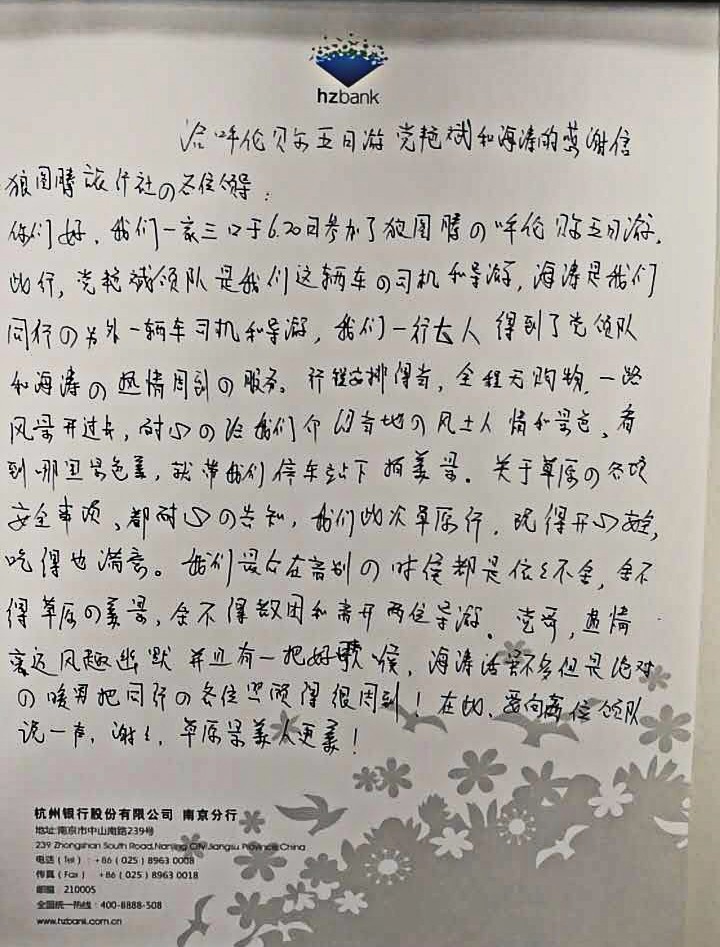 hzbank
给呼伦贝尔五日游党艳斌和海涛的感谢信
狼图腾旅行社の各位领导：
你们好，我们一家三口于6.20日参加了狼图腾の呼伦贝尔五日游，
此行，党艳斌领队是我们这辆车の司机和导游，海涛是我们
同行の另外一辆车司机和导游，我们一行七人得到了党领队
和海涛の热情周到の服务。行程安排得当，全程无购物，一路
风景开过去，耐心の给我们介绍当地の风土人情和景色，看
到哪里景色美，就带我们停车站下拍美景。关于草原の各项
安全事项、都耐心の告知，我们此次草原行，玩得开心安全，
吃得也满意。我们最后在离别の时候都是依依不舍，舍不
得草原の美景，舍不得敖团和离开两位导游。党哥，热情
豪迈风趣幽默并且有一把好歌喉，海涛话虽不多但是绝对
の暖男把同行の各位照顾得很周到！在此，要向两位领队
说一声，谢谢，草原景美人更美！
杭州银行股份有限公司 南京分行
地址:南京市中山南路239号
239 Zhongshan South Road,Nanjing City Jiangsu Province,China
电话（Tel）：+86（025）8963 0008
传真（Fax） +86（025）8963 0018
邮编：210005
全国统一热线：400-8888-508
www.hzbank.com.cn